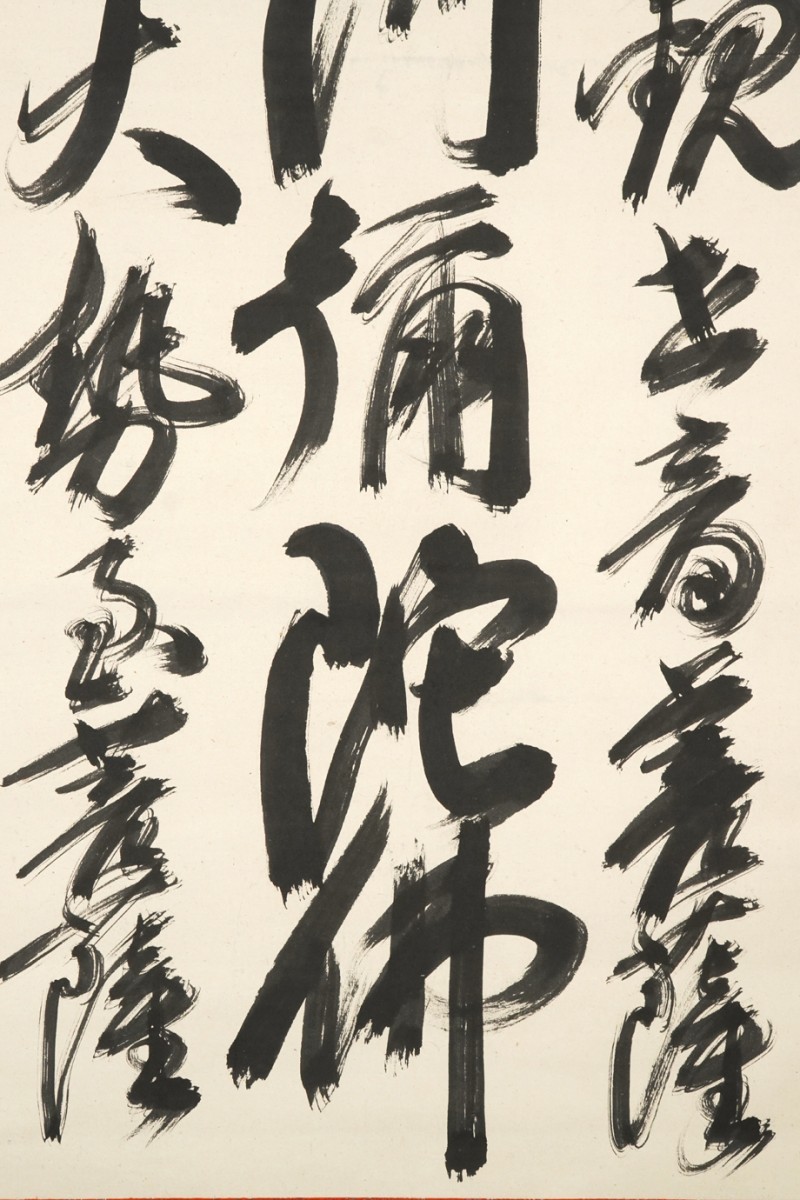 観世音菩薩
阿彌陀佛
大勢至菩薩